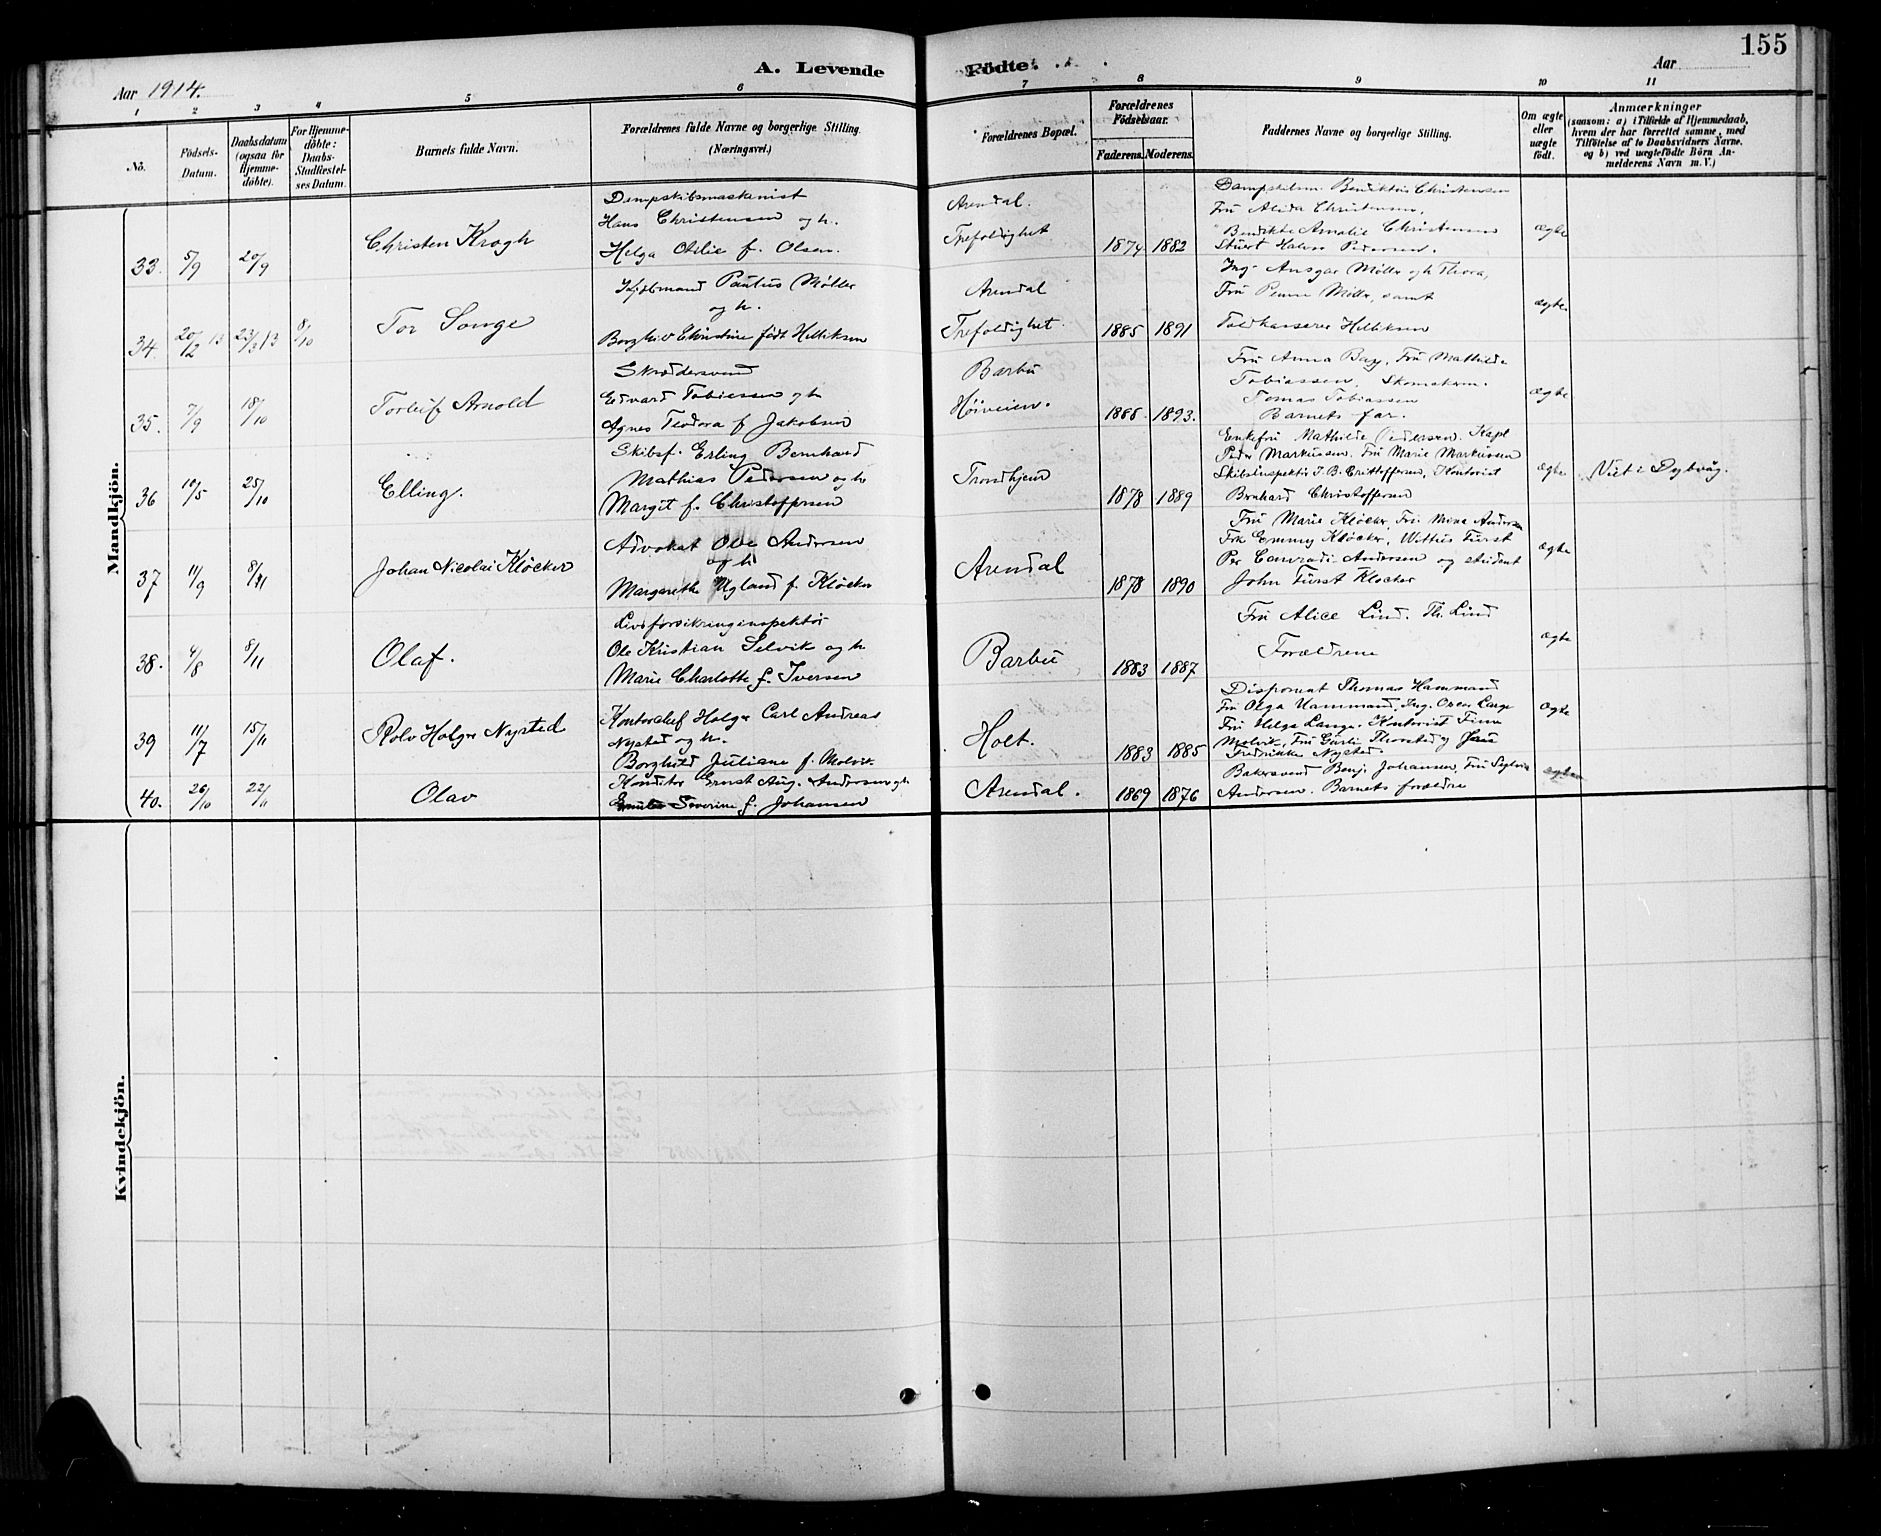 155
A. Levende Födte.
Aar 1914. Aar
1 2 3 4 5 6 7 8 9 10 11
No.
Födsels-Datum.
Daabsdatum (ogsaa for Hjemmedöbte).
For Hjemmedöbte: Daabs-Stadfæstelses Datum.
Barnets fulde Navn.
Forældrenes fulde Navne og borgerlige Stilling. (Næringsvei.)
Forældrenes Bopæl.
Forældrenes Födselsaar.
Faderens. Moderens.
Faddernes Navne og borgerlige Stilling.
Om ægte eller uægte födt.
Anmærkninger
(saasom: a) i Tilfælde af Hjemmedaab, hvem der har forrettet samme, med Tilföielse af to Daabsvidners Navne, og b) ved uægtefödte Börn Anmelderens Navn m. V.)
Mandkjön.
33. 5/9 20/9 Christen Krogh
Dampskibsmaskinist
Hans Christensen og h.
Helga Otilie f. Olsen.
Arendal.
Trefoldighet 1874 1882
Dampskibsm. Bendiktus Christensen
Fru Alida Christensen,
Bendikte Amalie Christensen
Stuert Halvor Pedersen.
ægte
34. 20/2 13 23/3 13 8/10 Tor Songe
Kjøbmand Paulus Møller
og h.
Borghild Christine født Helliksen
Arendal
Trefoldighet. 1885 1891
Ing. Ansgar Møller og h Thora,
Fru Penne Møller, samt
Toldkasserer Helliksen
ægte
35. 7/9 18/10 Torleif Arnold
Skræddersvend
Edvard Tobiassen og h
Agnes Teodora f Jakobsen
Barbu
Høiveien. 1886. 1893.
Fru Anna Bay, Fru Mathilde
Tobiassen, Skomakerm.
Tomas Tobiassen
Barnets far.
ægte
36 10/5 25/10 Elling.
Skibsf. Erling Bernhard
Mathias Pedersen og h
Margit f. Christoffersen
Trondhjem 1878 1889
Enkefru Mathilde Pedersen. Kapt
Peder Markussen. Fru Marie Markussen
Skibsinspektør J. B. Cristoffersen, Kontorist
Bernhard Christoffersen
ægte Viet i Dybvåg.
37 11/9 8/11 Johan Nicolai Kløcker
Advokat Ole Andersen
og h
Margarethe Ugland f. Kløcker
Arendal 1878 1890
Fru Marie Kløcker, Fru Mina Andersen
Frk Emmy Kløcker, Wettus Furst
Per Conradi Andersen og student
John Fürst Kløcker
ægte
38. 4/8 8/11 Olaf.
Livsforsikringinspektør
Ole Kristian Selvik og h
Marie Charlotte f. Iversen
Barbu 1883 1887
Fru Alice Lind. Th. Lind
Forældrene
ægte
39 11/7 15/11 Rolv Holger Nysted
Kontorchef Holger Carl Andreas
Nysted og h.
Borghild Juliane f. Molvik
Holt. 1883 1885
Disponent Thomas Hammand
Fru Olga Hammand, Ing. Oscar Lange
Fru Helga Lange. Kontorist Finn
Molvik, Fru Gürli Thorsted og Frü
Fredrikke Nysted
ægte
40. 26/10 22/11 Olav
Konditor Ernst Aug. Andersen og h
Emilie Severine f. Johansen
Arendal. 1869 1876
Bakersvend Benj. Johansen, Fru Sylvia
Andersen. Barnets forældre
ægte
Kvindekjön.